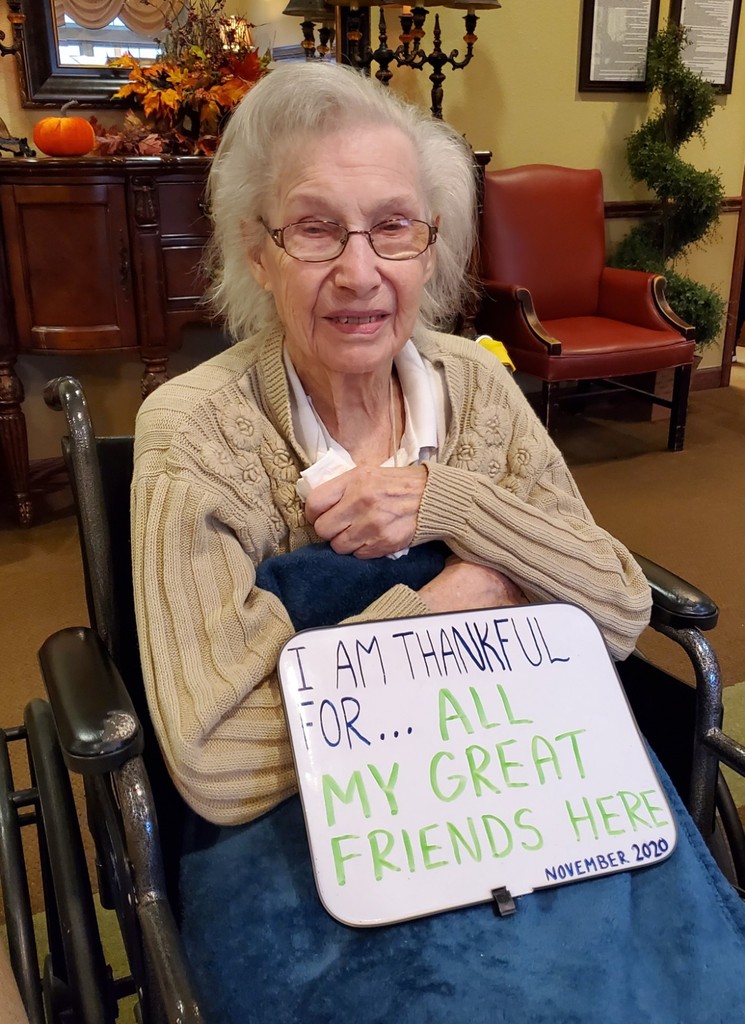 I AM THANKFUL
FOR... ALL
MY GREAT
FRIENDS HERE
NOVEMBER 2020